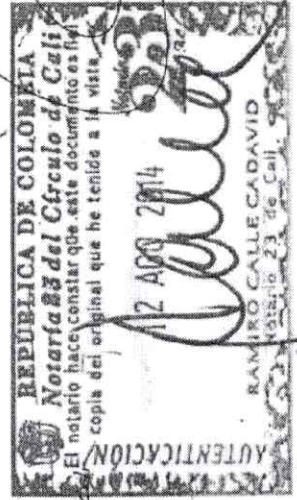 REPUBLICA DE COLOMBIA
Notaría 23 del Círculo de Cali
El notario hace constar que este documento es fiel
copia del original que he tenido a la vista
12 AGO 2014
23
RAMIRO CALLE CADAVID
Notario 23 de Cali
AUTENTICACIÓN